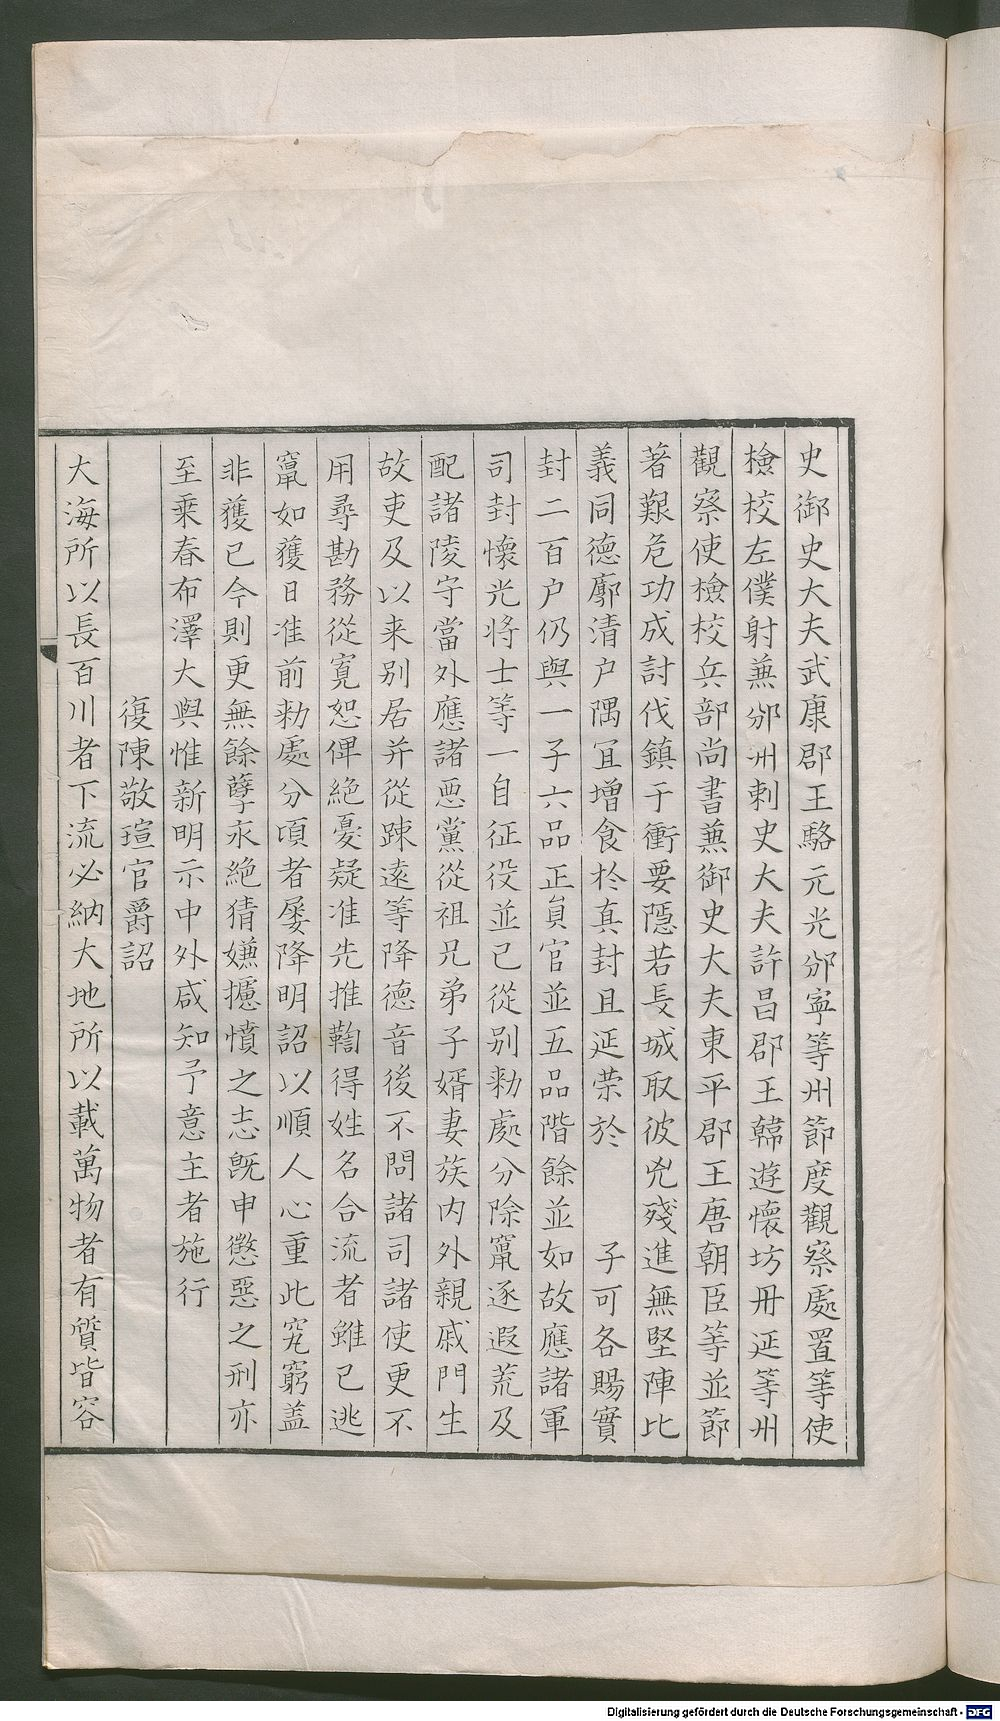 史御史大夫武康郡王駱元光邠寧等州節度觀察處置等使
檢校左僕射蕪邠州刺史大夫許昌郡王韓遊懷坊毌延等州
觀察使檢校兵部尚書蕪御史大夫東平郡王唐朝臣等並節
著艱危功成討伐鎮于衝要隱若長城取彼兇殘進無堅陣比
義同德廓清户隅宜增食於真封且延荣於　子可各賜實
封二百户仍與一子六品正員官並五品階餘並如故應諸軍
司封懷光将士等一自征役並已從别勑處分除竄逐遐荒及
配諸陵守當外應諸惡黨從祖兄弟子婿妻族内外親戚門生
故吏及以来别居并從踈遠等降德音後不問諸司諸使更不
用尋勘務從寛恕俾絶憂疑准先推鞫得姓名合流者雖已逃
竄如獲日准前勑處分頃者屡降明詔以順人心重此究窮盖
非獲已今則更無餘孽永絶猜嫌攄憤之志既申懲惡之刑亦
至乗春布澤大與惟新明示中外咸知予意主者施行
復陳敬瑄官爵詔
大海所以長百川者下流必納大地所以載萬物者有質皆容
Digitalisierung gefördert durch die Deutsche Forschungsgemeinschaft - DFG